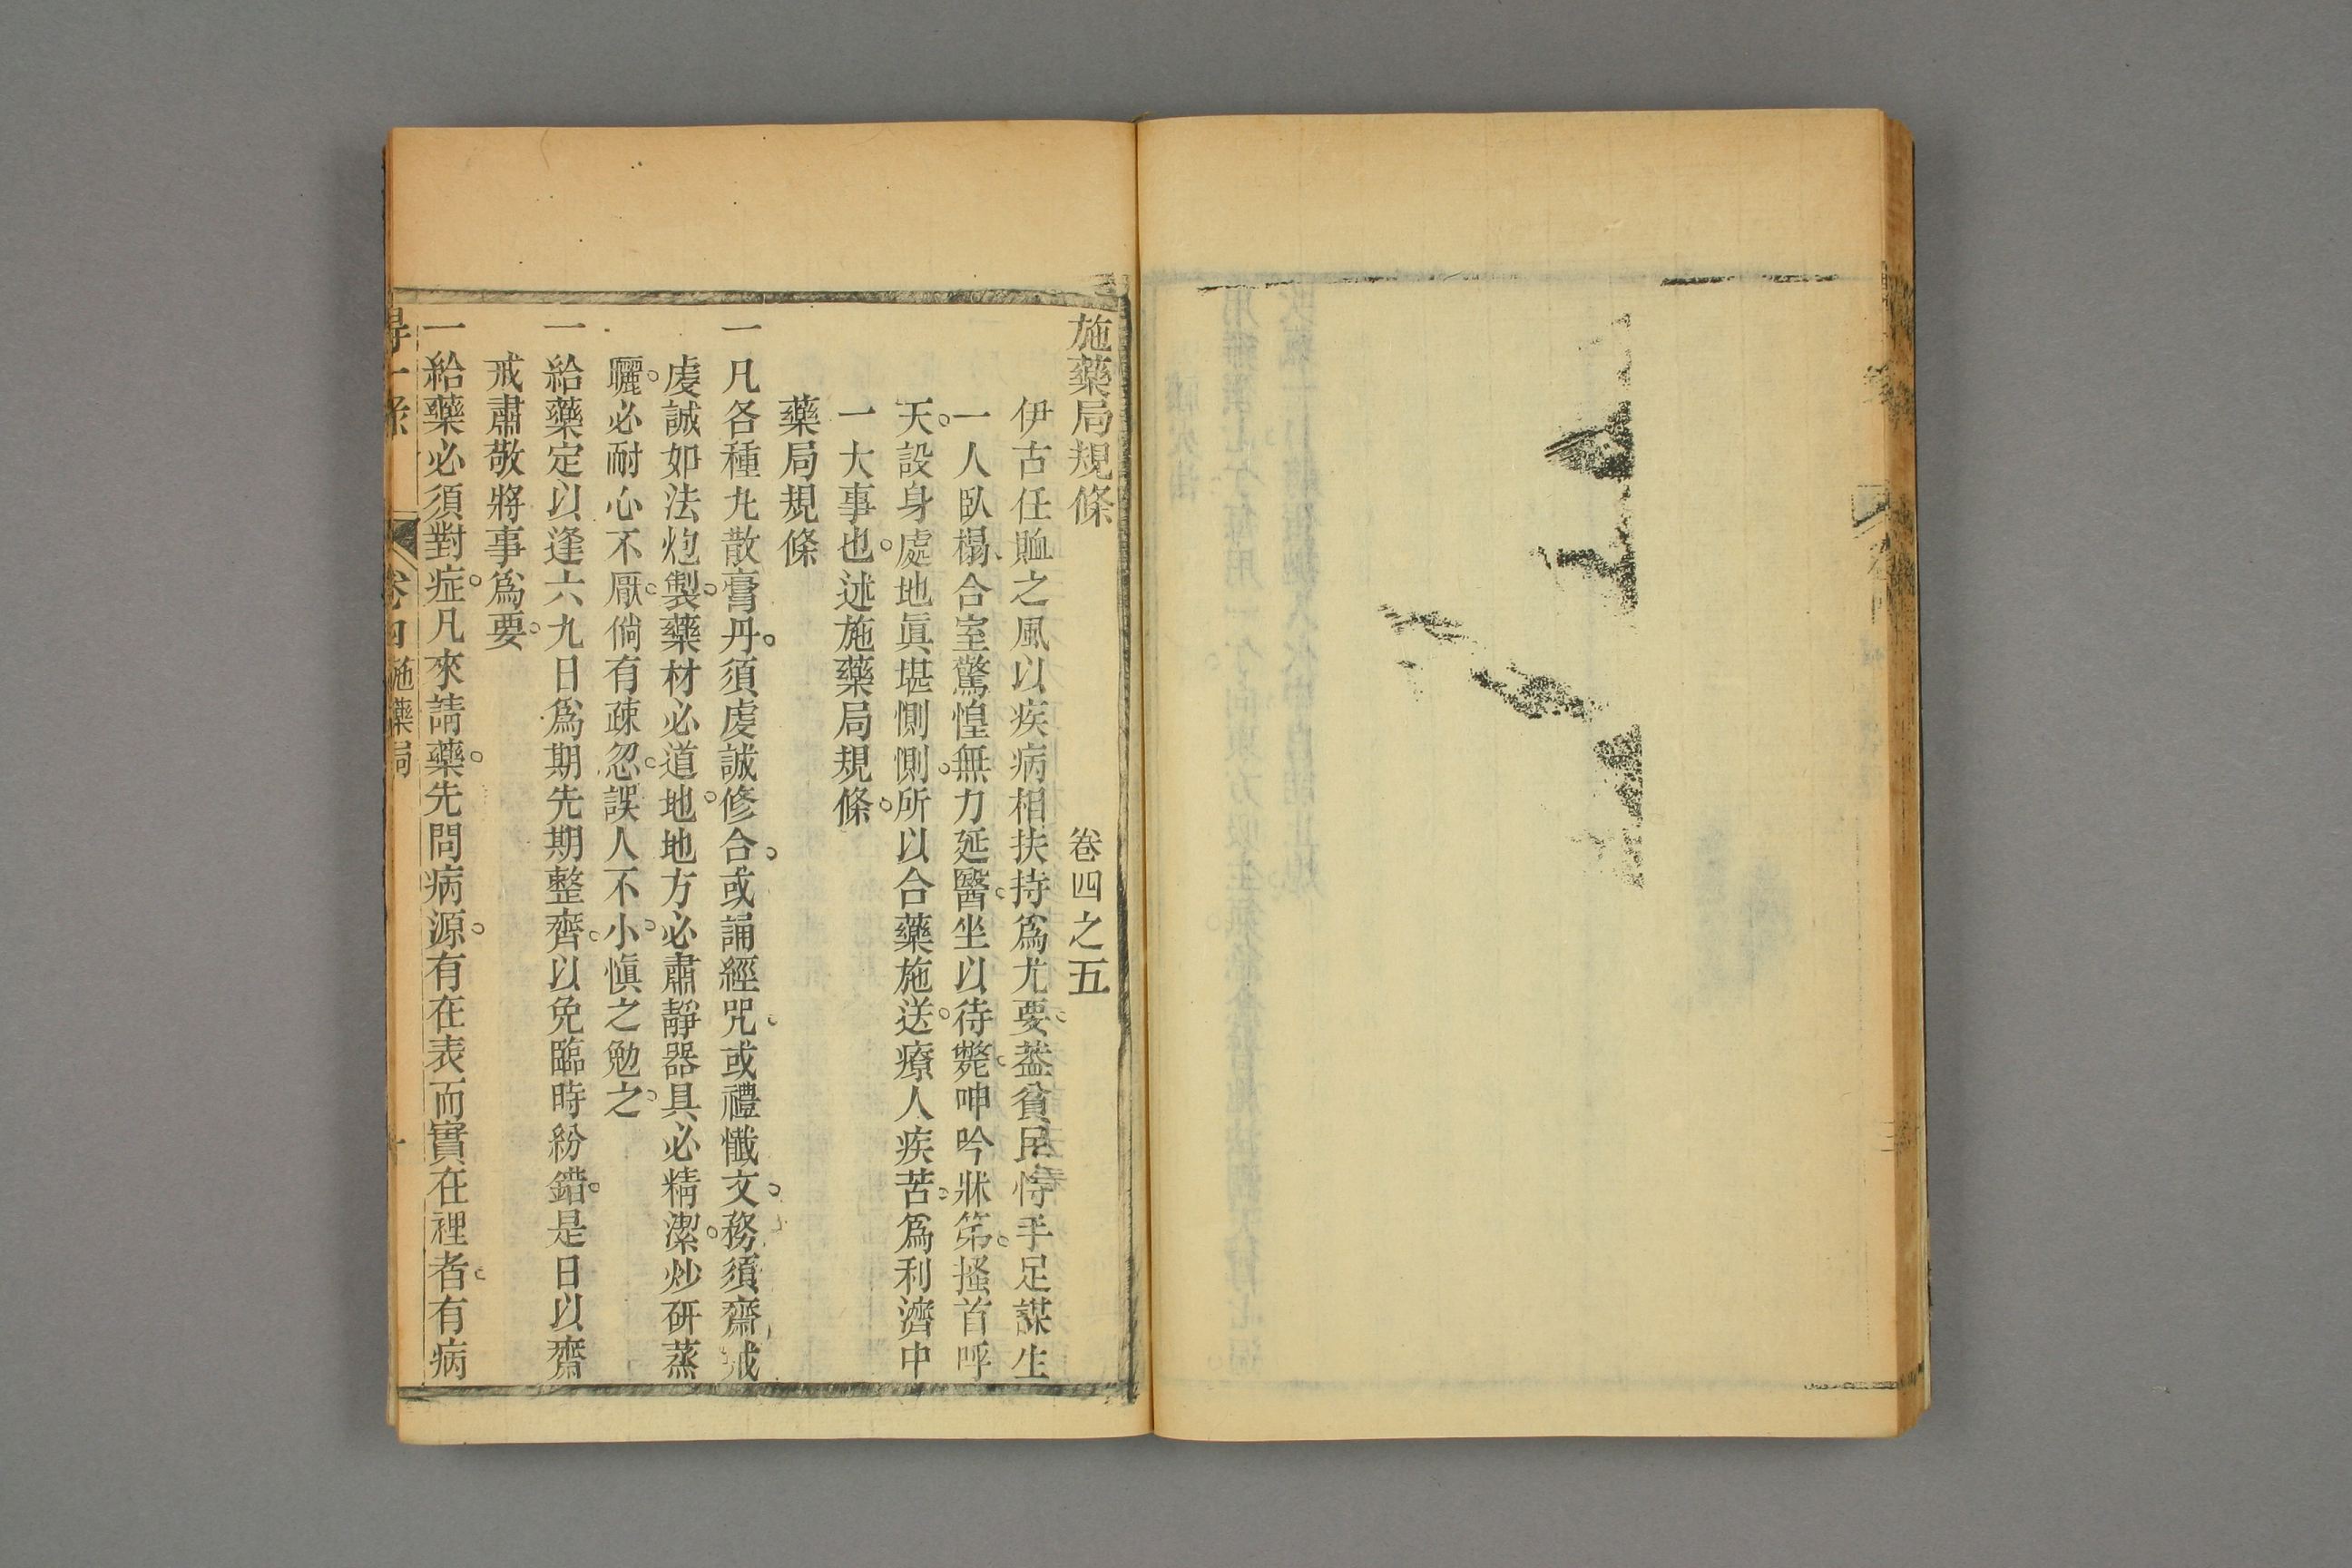 施藥局規條 卷四之五
伊古任卹之風以疾病相扶持爲尤要。葢貧民恃手足謀生
一人臥榻、合室驚惶無力延醫。坐以待斃。呻吟牀笫。搔首呼
天。設身處地眞堪惻惻。所以合藥施送。療人疾苦。爲利濟中
一大事也。述施藥局規條。
藥局規條
一凡各種九散膏丹。須虔誠修合。或誦經咒。或禮懺文。務須齋戒
虔誠如法炮製。藥材必道地。地方必肅靜器具必精潔。炒研蒸
曬。必耐心不厭。倘有疎忽。誤人不小。愼之勉之。
一給藥定以逢六九日爲期先期整齊。以免臨時紛錯。是日以齋
戒肅敬將事爲要。
一給藥必須對症。凡來請藥。先問病源。有在表而實在裡者。有病
得一彔 卷四 施藥局